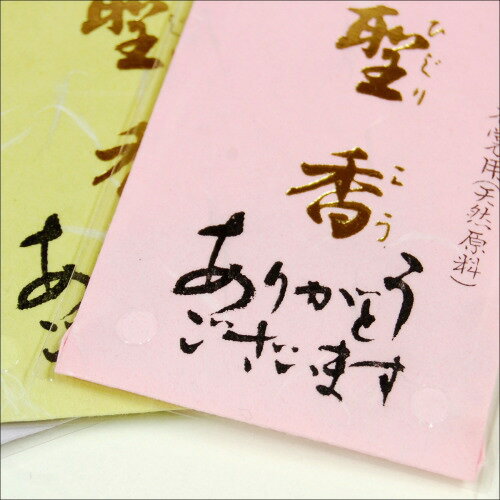 聖香
ひじりこう
用(天然原料)
ありがとう
ございます
聖
香
あ
ご